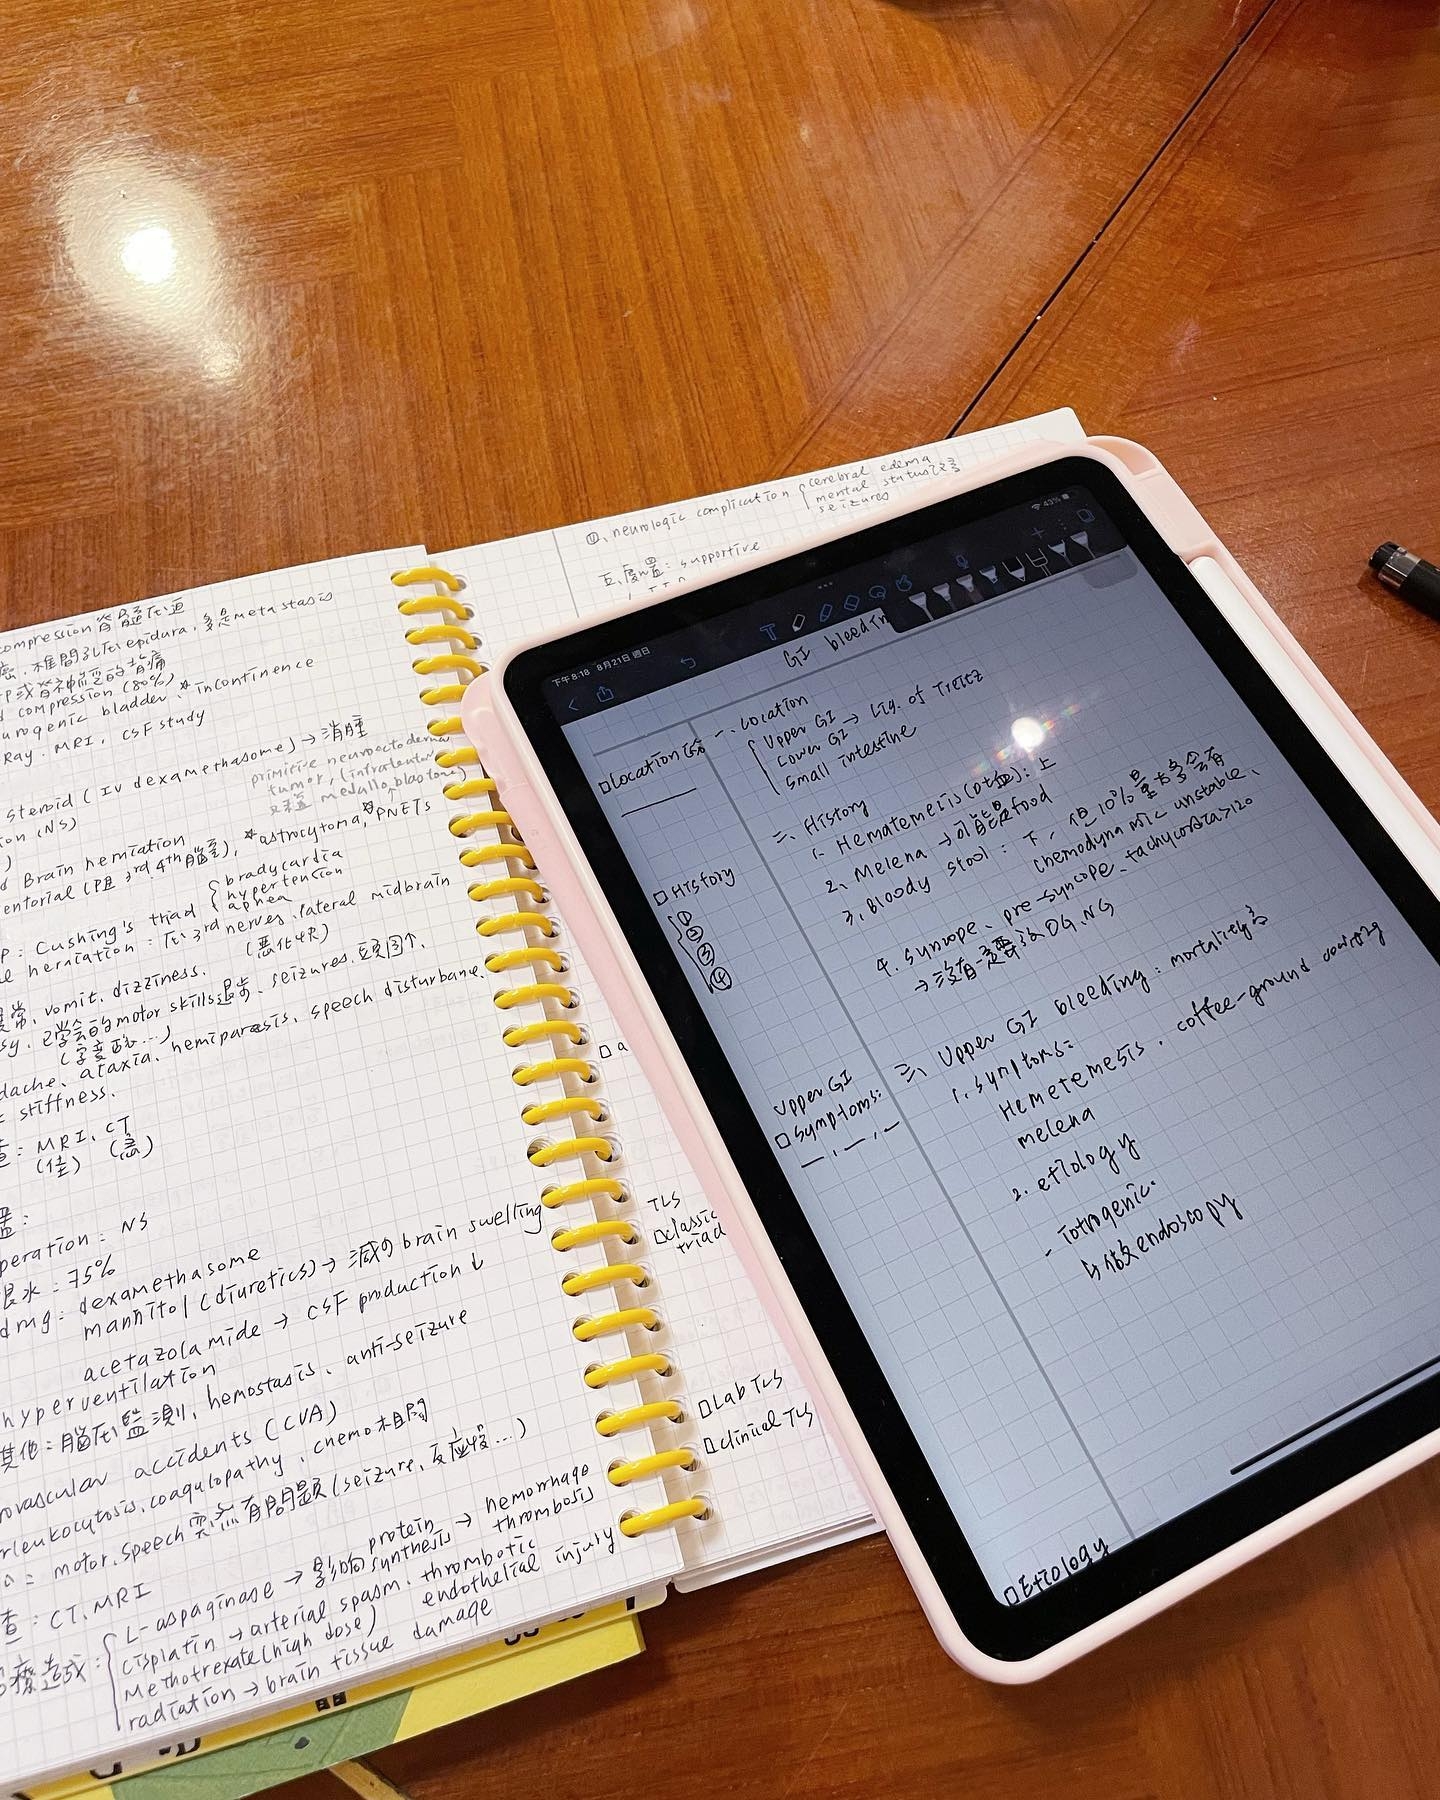 compression 脊髓压迫
癌,椎間孔压epidura,多是metastasis
P或脊神經的背痛
d compression (80%)
urogenic bladder *incontinence
Ray. MRI. CSF study
steroid (IV dexamethasome) → 消腫
ion (NS)
primitive neuroectoderma
tumor, (infratentor
又稱 medalloblastoma)
d Brain herniation
entorial (阻 3rd.4th腦室), *astrocytoma, *PNETs
P: Cushing's triad { bradycardia
hypertension
apnea
herniation: 压3rd nerves, lateral midbrain
(惡化快)
異常, vomit. dizziness.
sy, 已學會的motor skills退步, seizures. 頭圍↑.
(字變醜...)
dache、ataxia、hemiparesis、speech disturbane.
stiffness.
查: MRI、CT
(佳) (急)
置:
peration: NS
限水: 75%
dmg: dexamethasome
mannitol (diuretics) → 減少brain swelling
acetazolamide → CSF production ↓
hyperventilation
其他:腦压監測、hemostasis、anti-seizure
rovascular accidents (CVA)
rleukocytosis.coagulopathy、chemo相關
motor.speech突然有問題 (seizure、反應慢...)
查: CT、MRI
療造成: { L-aspaginase → 影响 protein synthesis → hemorrhage
thrombosis
cisplatin → arterial spasm. thrombotic
Methotrexate (high dose) endothelial injury
radiation → brain tissue damage
四、neurologic complication { cerebral edema
mental status改變
seizures
五、處置: supportive
□ a
TLS
□classic
triad
□Lab TLS
□clinical TLS
下午8:18 8月21日 週日
43%
GI bleedin
□Location
一、Location
{ Upper GI → Lig. of Treitz
Lower GI
Small intestine
□History
①
②
③
④
二、History
1. Hematemesis (吐血): 上
2、Melena → 可能是food
3、Bloody stool: 下, 但10%是
hemodynamic unstable、
4. syncope、pre-syncope、tachycardia>120
→ 沒有一定要放OG、NG
Upper GI
□Symptoms:
三、Upper GI bleeding: mortality高
1. symptoms:
Hemetemesis、coffee-ground
melena
2. etiology
- Iotrogenic.
↳做endoscopy
□Etiology